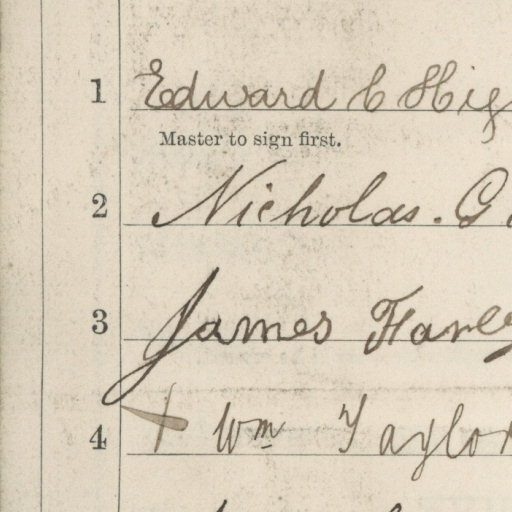 1 Edward C Hig
Master to sign first.
2 Nicholas. G
3 James Harley
4 + Wm Taylor